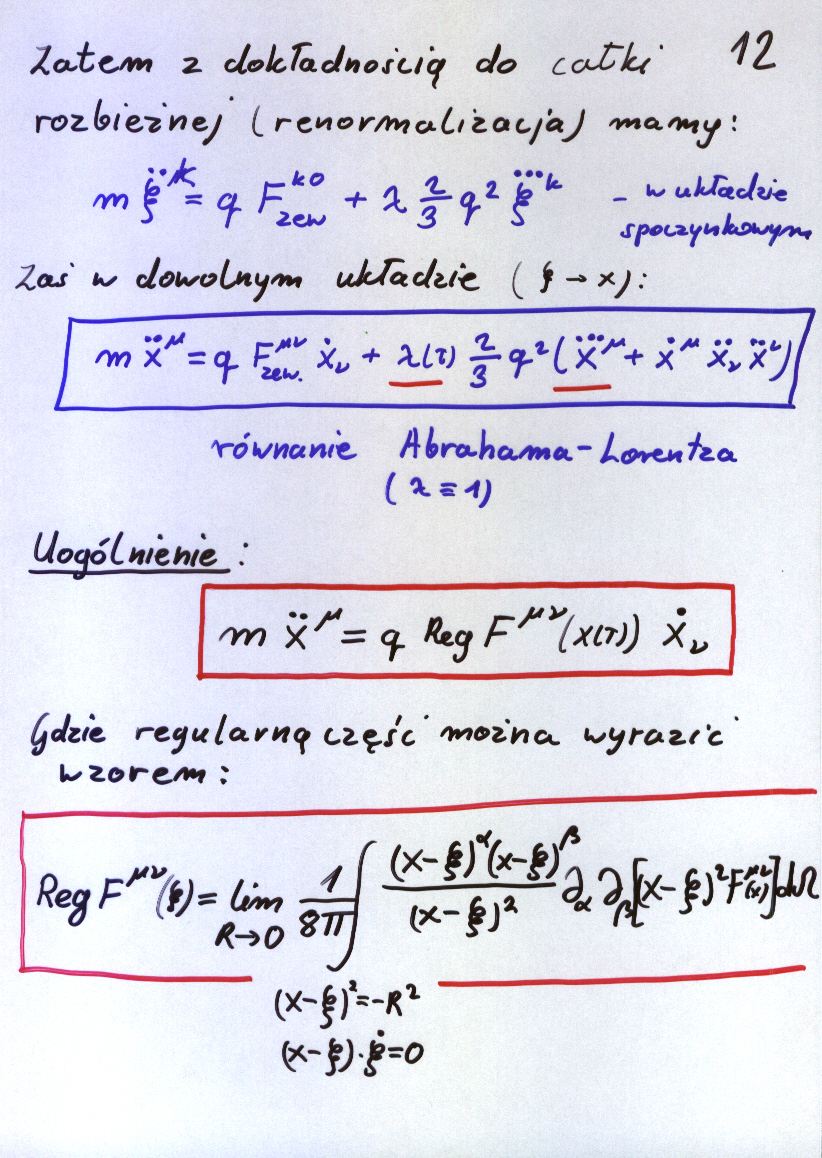 Zatem z dokładnością do całki 12
rozbieżnej (renormalizacja) mamy:
m ξ̈^k = q F_zew^{k0} + λ 2/3 q² ξ⃛^k - w układzie
spoczynkowym
Zaś w dowolnym układzie (ξ → x):
m ẍ^μ = q F_zew.^{μν} ẋ_ν + λ(τ) 2/3 q² (x⃛^μ + ẋ^μ ẍ_ν ẍ^ν)
równanie Abrahama-Lorentza
(λ ≡ 1)
Uogólnienie:
m ẍ^μ = q Reg F^{μν}(x(τ)) ẋ_ν
Gdzie regularną część można wyrazić
wzorem:
Reg F^{μν}(ξ) = lim_{R→0} 1/8π ∫ (x-ξ)^α(x-ξ)^β/(x-ξ)² ∂_α ∂_β[(x-ξ)² F^{μν}(x)]dΩ
(x-ξ)²=-R²
(x-ξ)·ξ̇=0